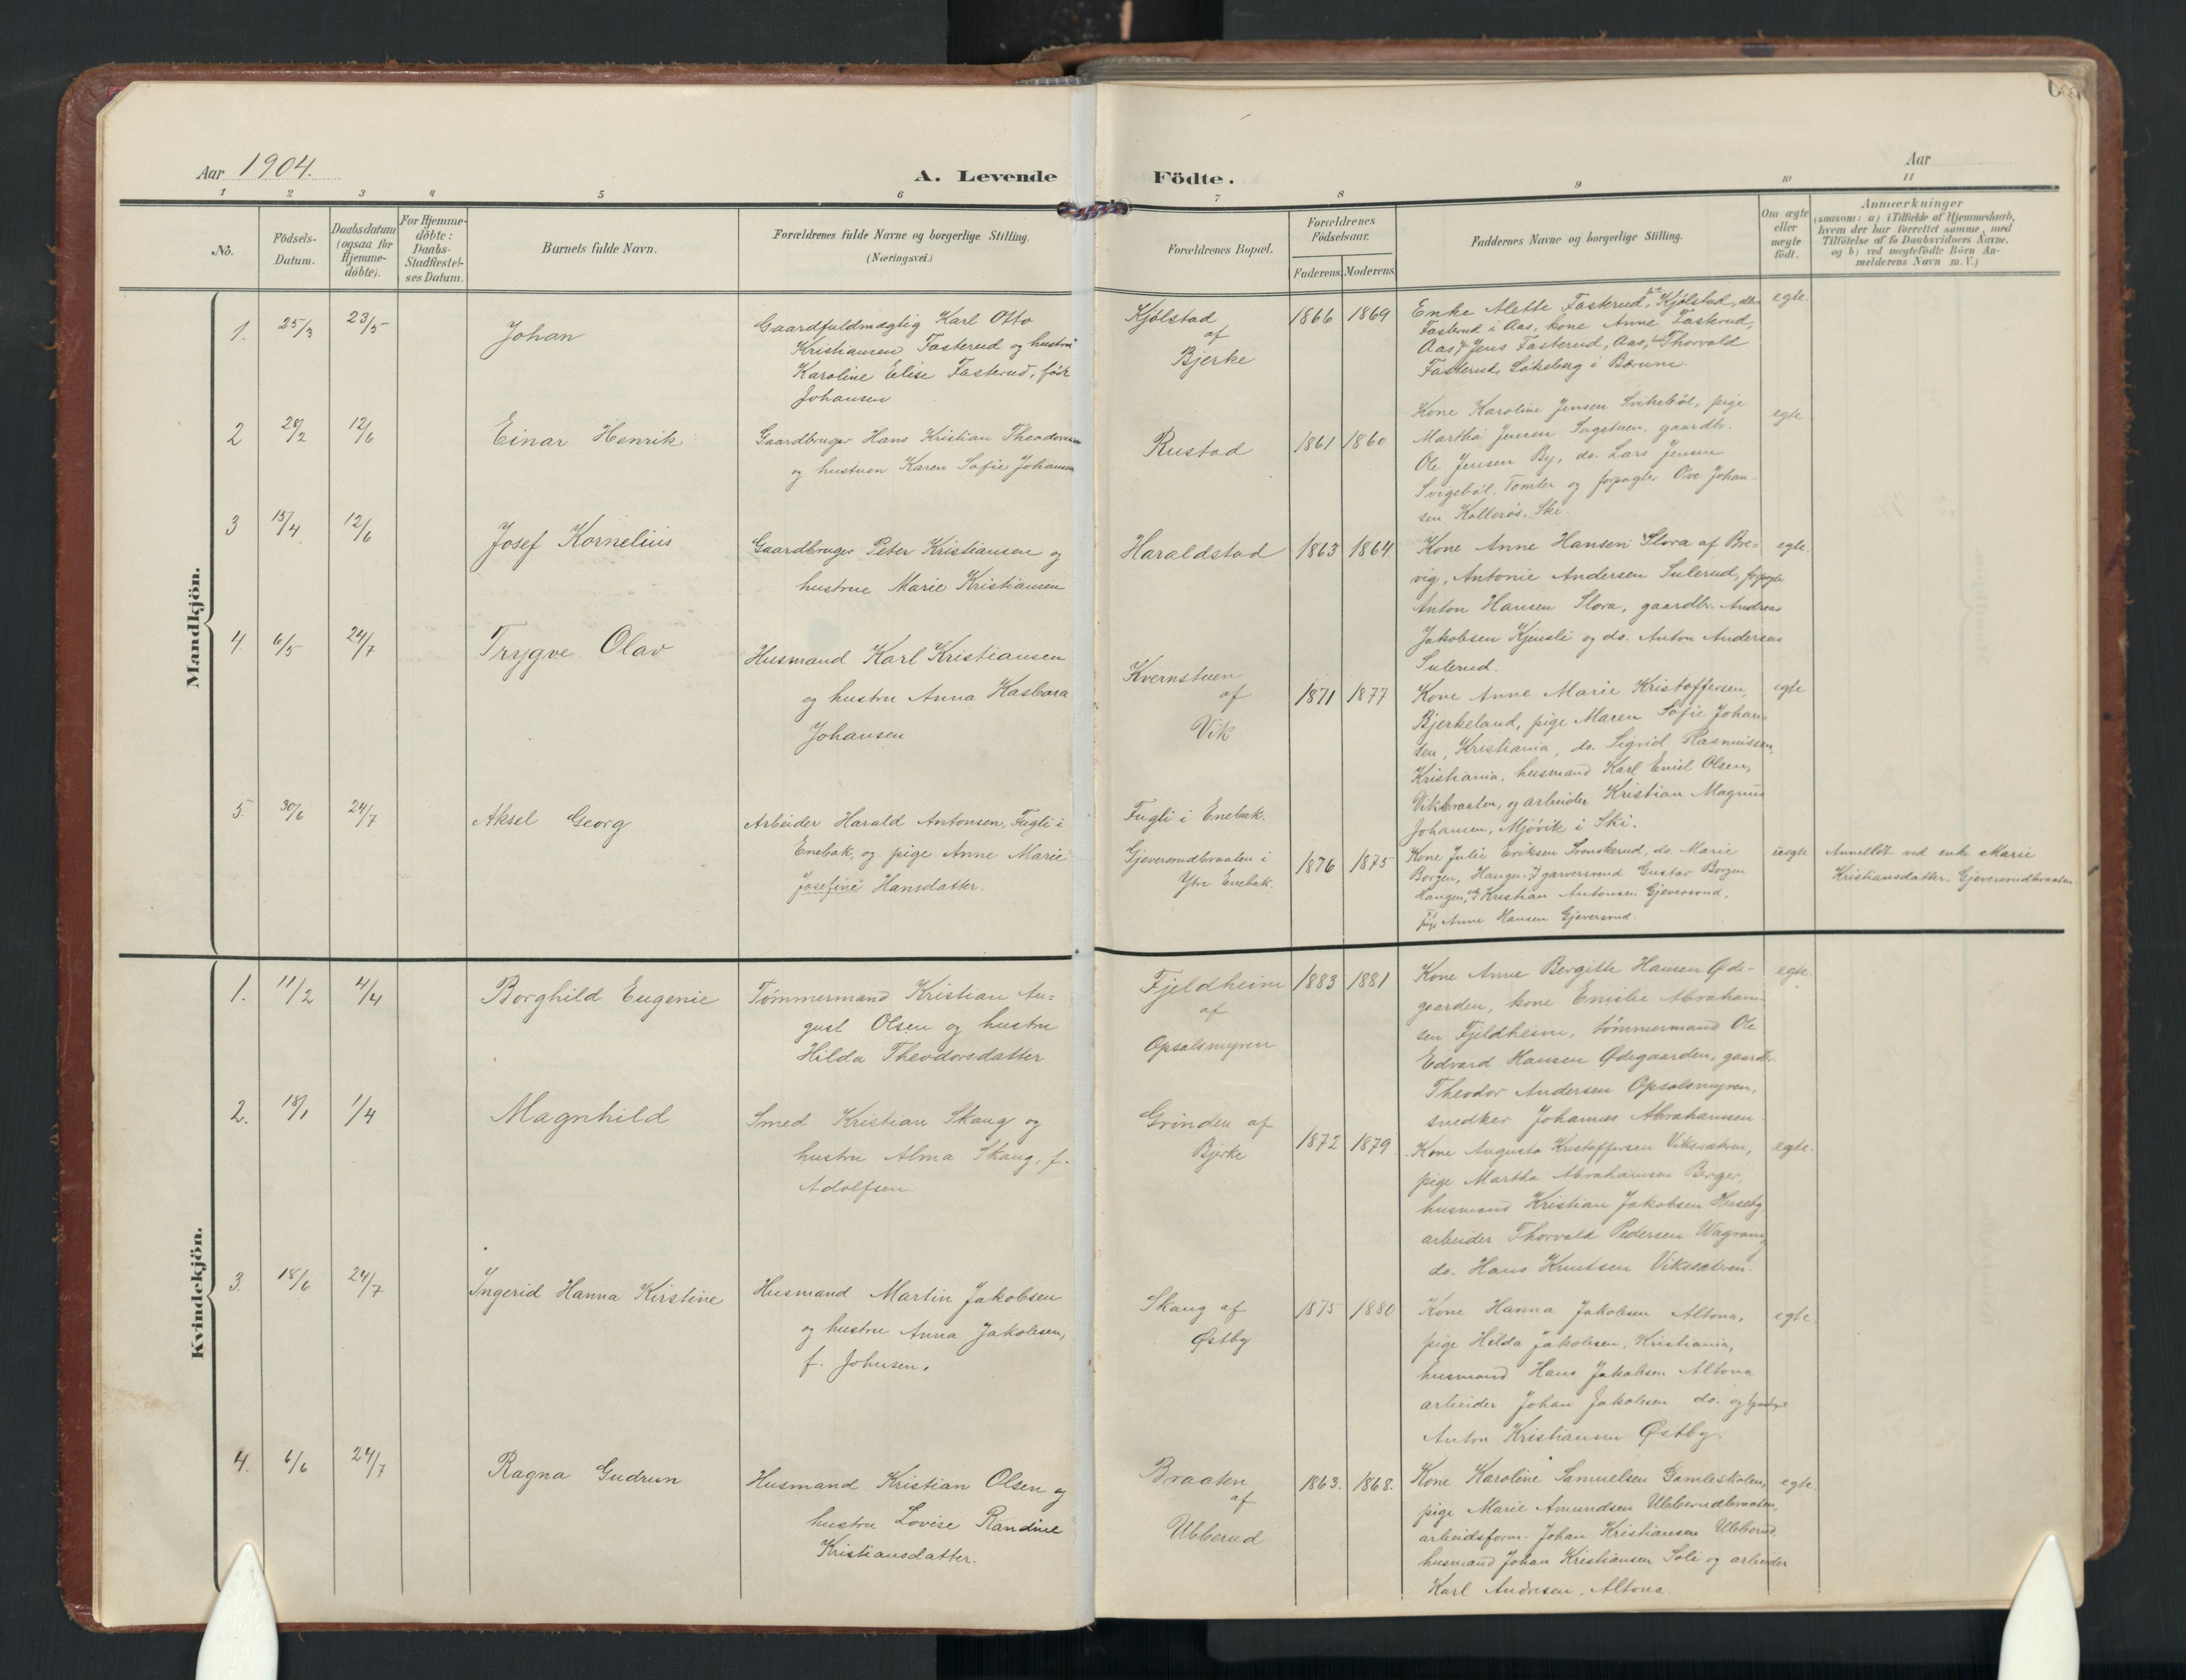 Aar 1904.
A. Levende
Födte.
Aar
1 2 3 4 5 6 7 8 9 10 11
Nö.
Födsels-
Datum.
Daabsdatum
(ogsaa for
Hjemme-
döbte).
For Hjemme-
döbte:
Daabs-
Stadfæstel-
ses Datum.
Barnets fulde Navn.
Forældrenes fulde Navne og borgerlige Stilling.
(Næringsvei.)
Forældrenes Bopæl.
Forældrenes
Födselsaar.
Faderens. Moderens.
Faddernes Navne og borgerlige Stilling.
Om ægte
eller
uægte
födt.
Anmærkninger
(saasom: a) i Tilfælde af Hjemmedaab,
hvem der har forrettet samme, med
Tilföielse af to Daabsvidners Navne.
og b) ved uægtefödte Börn An-
melderens Navn m. V.)
Mandkjön.
1. 25/3 23/5 Johan
Gaardfuldmægtig Karl Otto
Kristiansen Fasterud og hustru
Karoline Elise Fasterud, født
Johansen
Kjølstad
af
Bjerke
1866 1869
Enke Alette Fasterud, Kjølstad,
Fasterud i Aas, kone Anne Fasterud,
Aas, Jens Fasterud, Aas, Thorvald
Fasterud, Løkeberg i Bærum.
egte.
2 29/2 12/6 Einar Henrik
Gaardbruger Hans Kristian Theodorsen
og hustruen Karen Sofie Johansen
Rustad
1861 1860
Kone Karoline Jensen Svikebøl, pige
Martha Jensen Sagstuen, gaardbr.
Ole Jensen By, do. Lars Jensen
Svigebøl, Tomter og forpagter Ove Johan-
sen Kollerøs, Ski.
egte
3 15/4 12/6 Josef Kornelius
Gaardbruger Peter Kristiansen og
hustrue Marie Kristiansen
Haraldstad
1863 1864.
Kone Anne Hansen Slora af Bre-
vig, Antonie Andersen Sulerud, forpagter
Anton Hansen Slora, gaardbr. Andreas
Jakobsen Kjensli og do. Anton Andersen
Sulerud.
egte.
4. 6/5 24/7 Trygve Olav
Husmand Karl Kristiansen
og hustru Anna Kasbara
Johansen
Kvernstuen
af
Vik
1871 1877
Kone Anne Marie Kristoffersen,
Bjerkeland, pige Maren Sofie Johan-
sen, Kristiania, do. Sigrid Rasmussen,
Kristiania, husmand Karl Emil Olsen,
Vikbraaten, og arbeider Kristian Magnus
Johansen, Mjøvik i Ski.
egte
5. 30/6 24/7 Aksel Georg
Arbeider Harald Antonsen, Fugli i
Enebak, og pige Anne Marie
Josefine Hansdatter.
Fugli i Enebak.
Gjeversrudbraaten i
Ytre Enebak.
1876 1875
Kone Julie Eriksen Svenskerud, do. Marie
Borgen, Haugen, garversvend Gustav Borgen
Haugen, Kristian Antonsen Gjeversrud,
pige Anne Hansen Gjeversrud.
uegte
Anmeldt ved enke Marie
Kristiansdatter, Gjeversrudbraaten.
Kvindekjön.
1. 11/2 4/4 Borghild Eugenie
Tømmermand Kristian Au-
gust Olsen og hustru
Hilda Theodorsdatter
Fjeldheim
af
Opsalsmyren
1883 1881
Kone Anne Bergitte Hansen Øde-
gaarden, kone Emilie Abraham-
sen Fjeldheim, tømmermand Ole
Edvard Hansen Ødegaarden, gaardbr.
Theodor Andersen Opsalsmyren,
snedker Johannes Abrahamsen.
egte.
2. 18/1 1/4 Magnhild
Smed Kristian Skaug og
hustru Alma Skaug, f.
Adolfsen
Grinden af
Bjerke
1872 1879
Kone Augusta Kristoffersen Viksætren,
pige Martha Abrahamsen Berger,
husmand Kristian Jakobsen Huseby,
arbeider Thorvald Pedersen
do. Hans Knutsen Viksætren.
egte.
3. 18/6 24/7 Ingerid Hanna Kirstine
Husmand Martin Jakobsen
og hustru Anna Jakobsen,
f. Johnsen.
Skaug af
Østby
1875 1880
Kone Hanna Jakobsen Altona,
pige Hilda Jakobsen, Kristiania,
husmand Hans Jakobsen Altona
arbeider Johan Jakobsen do. og
Anton Kristiansen Østby.
egte.
4. 6/6 24/7 Ragna Gudrun
Husmand Kristian Olsen og
hustru Lovise Randine
Kristiansdatter.
Braaten
af
Ubberud
1863. 1868.
Kone Karoline Samuelsen Gamleskolen,
pige Marie Amundsen Ubberudbraaten,
arbeidsform. Johan Kristiansen Ubberud,
husmand Johan Kristiansen Soli og arbeider
Karl Andresen, Altona
egte.